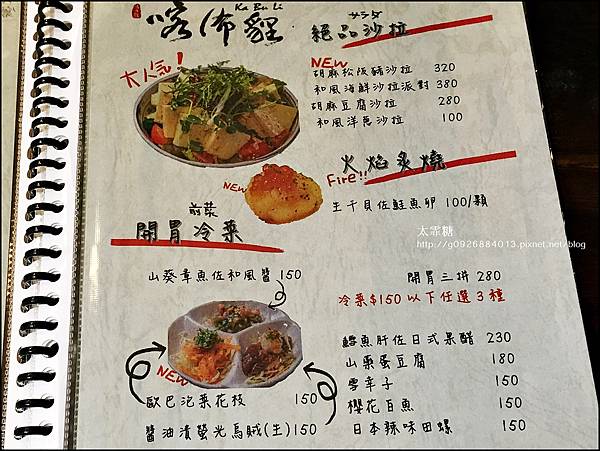 Ka Bu Li
喀佈貍
大人氣!
サラダ
絕品沙拉
NEW
胡麻松阪豬沙拉 320
和風海鮮沙拉派對 380
胡麻豆腐沙拉 280
和風洋蔥沙拉 100
火焰炙燒
Fire!!
NEW
生干貝佐鮭魚卵 100/顆
前菜
開胃冷菜
太霏糖
http://g0926884013.pixnet.net/blog
山葵章魚佐和風醬 150
開胃三拼 280
冷菜$150以下任選3種
NEW
歐巴泡菜花枝 150
醬油漬螢光烏賊(生) 150
鱈魚肝佐日式果醋 230
山藥蛋豆腐 180
雪幸子 150
櫻花白魚 150
日本辣味田螺 150